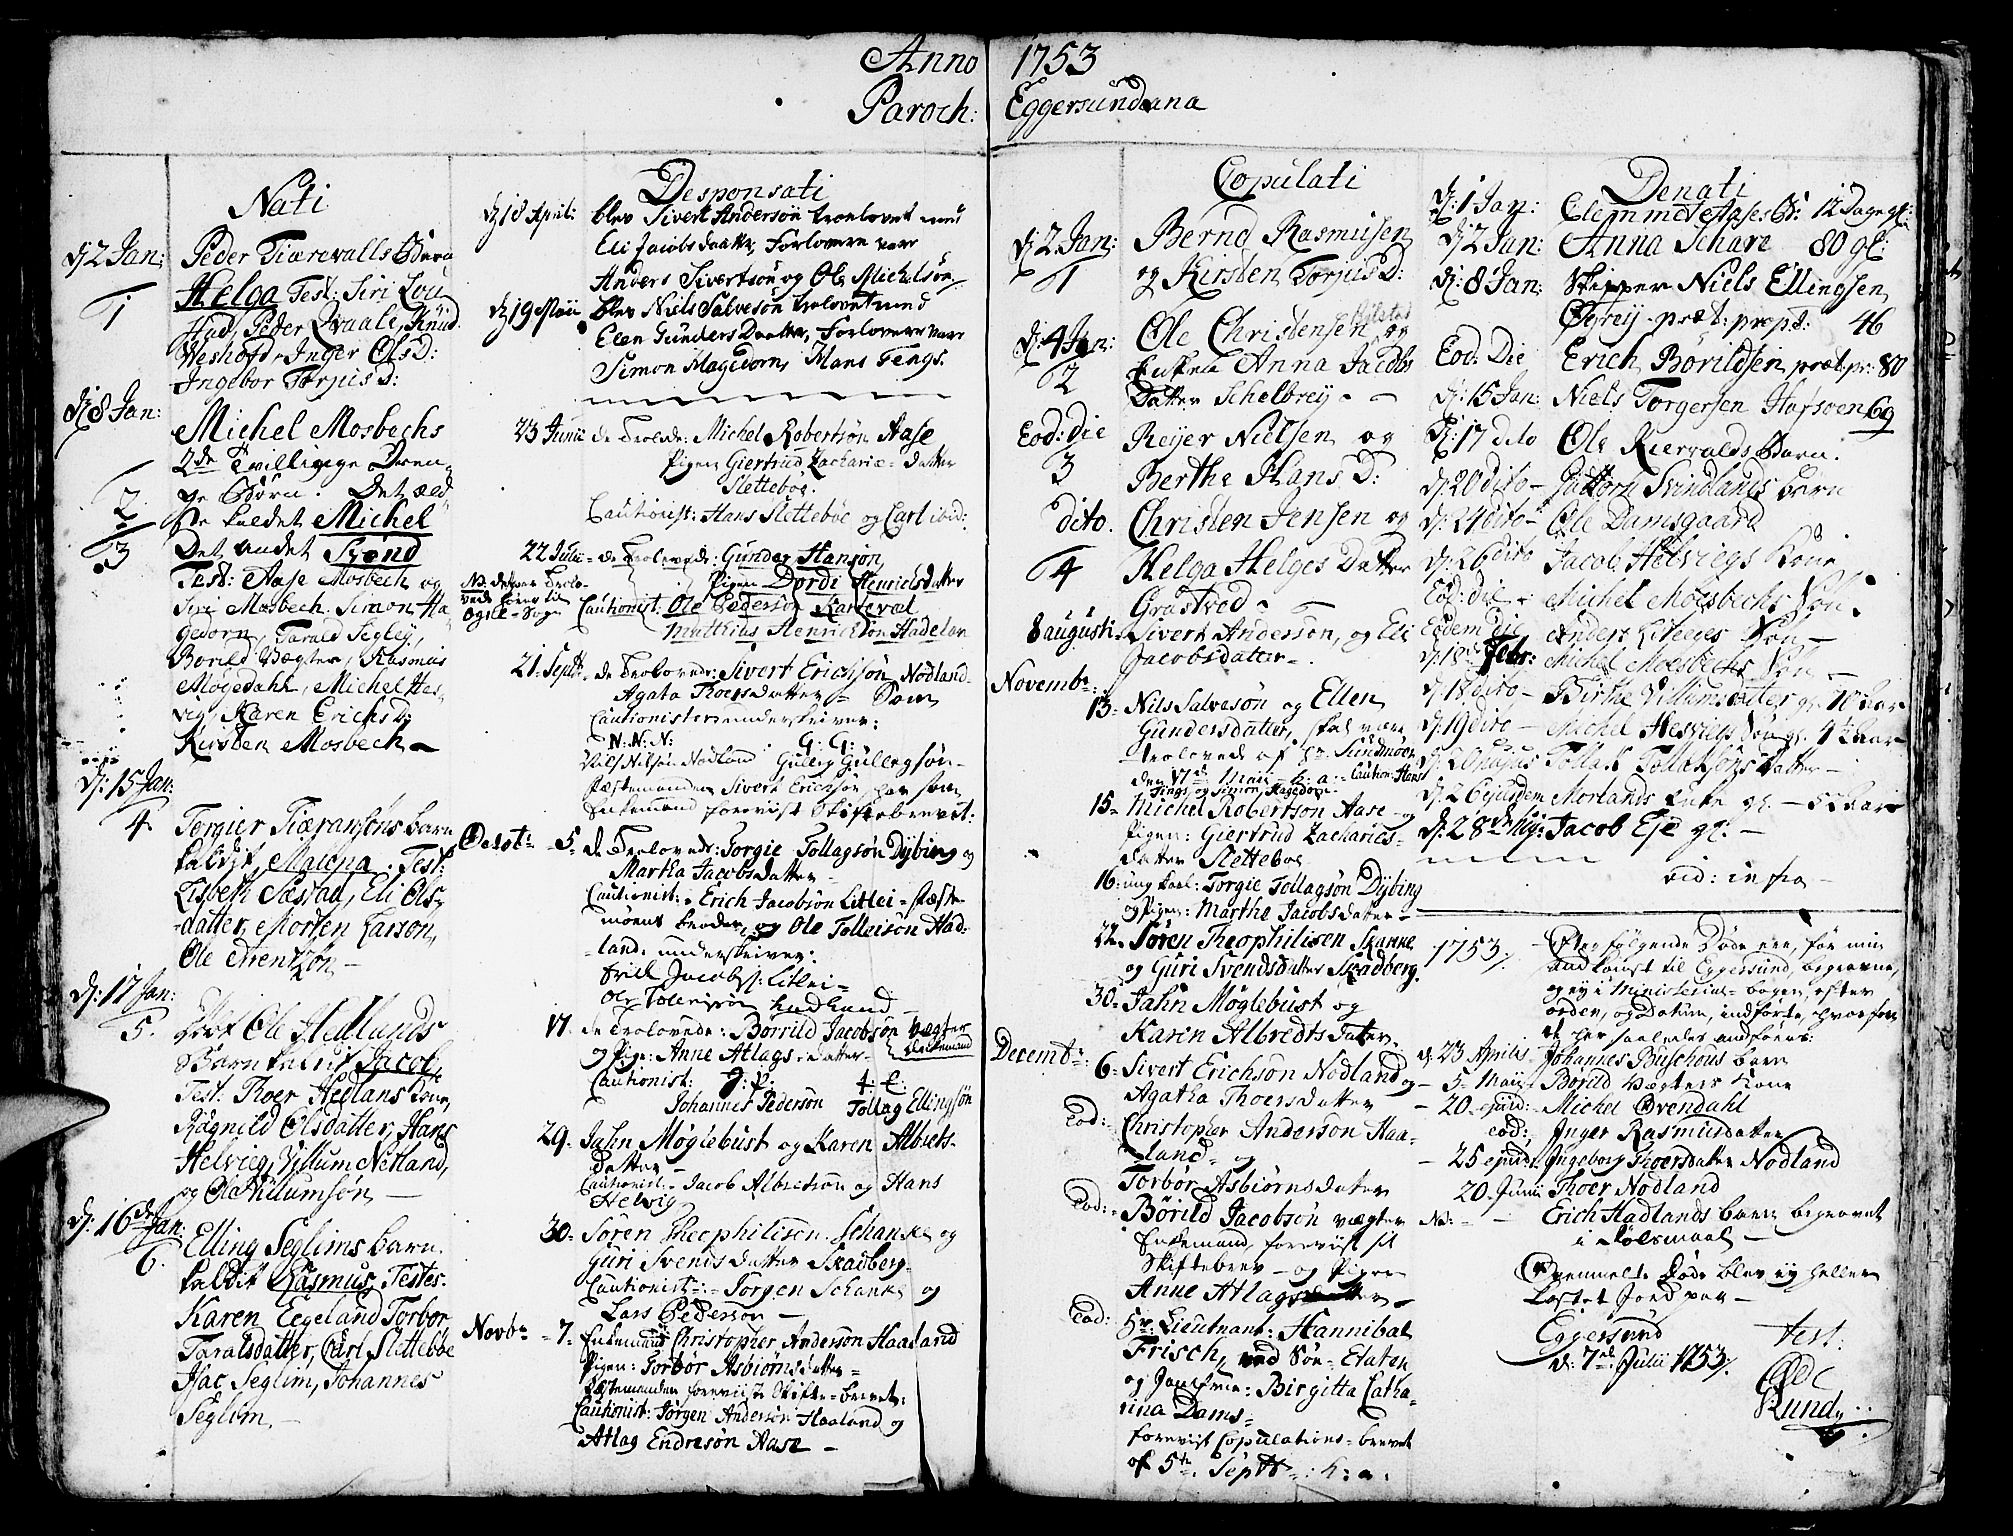 Anno 1753
Paroch: Eggersundana
Nati
dj 2 Jan:
1
Peder Tiærevalls Barn
Helga Test: Siri Lou
Had, Peder Qvaale, Knud
Weshofd, Inger OlsD:
Ingebor TorjusD:
dj 8 Jan:
Michel Mosbechs
2de Tvillinge Dren-
ge Børn. Det æld-
2
ste kaldet Michel
3
Det andet Svend
Test: Aase Mosbech og
Siri Mosbech. Simon Ha-
gedorn, Tarald Segley,
Borild Vægter, Rasmus
Møgedahl, Michel Hes-
vig, Karen ErichsD:
Kirsten Mosbech
dj: 15 Jan:
4
Torgier Tiæransøns barn
kaldet Malena. Test:
Lisbeth Sæstad, Eli Ols-
datter, Morten Larson,
Ole
dj: 17 Jan:
5.
Ole Hellands
Barn kaldet Jacob,
Test: Thoer Hellans Kone,
Ragnild Olsdatter, Hans
Helvieg, Villum Netland,
og Ola Villumsøn
dj: 16de Jan:
6.
Elling Seglims barn
kaldet Rasmus, Testes:
Karen Eegeland Torbor
Taralsdatter, Carl Slettebøe
Isac Seglim, Johannes
Seglim.
Desponsati
dj 18 April: blev Sivert Andersøn troelovet med
Eli Jacobsdaatter, Forlovere vare
Anders Sivertsøn og Ole Michelsøn
dj 19 Maii blev Niels Salvesøn trolovet med
Elen Gunders Daatter, Forlovere vare
Simon Magedorn, Hans Tengs.
23 Junii de Trolovede: Michel Robertsøn Aase
Pigen Giertrud Zachariæ-datter
Sletteboe.
Cautionist: Hans Slettebøe og Carl ibid:
22 Julii - de Trolovede: Gunder Hanson,
Pigen Dordi Henrichsdatter
NB: disse Trolo-
vede
Ogne-Sogn
Cautionist: Ole Pederson Karleval
Matthias Henrichson Hadelan
21. Septb: de Trolovede: Sivert Ericksøn Nodland
Agata Thoersdatter - Som
Cautionister underskriver:
N: N: N: G: G:
Niels Nilsøn Nodland Gulleg Gullegsøn-
Fæstemanden Sivert Ericsøn har som
Enkemand foreviist Skiftebrevet:
Octobr 5. de Trolovede: Torgie Tollagsøn Dybing og
Martha Jacobsdatter
Cautionist: Erich Jacobsøn Litlei - Fæste-
møens broder, og Ole Tolleisøn Had-
land. underskriver:
Erik Jacobss: Litlei-
Ole Toleisøn Hadland
17. de Trolovede: Børrild Jacobsøn Vægter
Enkemand
og Pige: Anne Atlags-datter
Cautionist: J: P: T: E:
Johannes Pedersøn Tollag Ellingsøn
29. Jahn Møglebust og Karen Albrets-
datter
Cautionist - Jacob Albretsøn og Hans
Helvig
30. Søren Theophilisen Schanke og
Guri Svends datter Skadberg
Cautionist: Jørgen Schanke og
Lars Pederson
Novbr 7. Enkemand Christopher Anderson Haaland
Pigen: Torbor Asbiørnsdatter
Fæstemanden foreviiste Skifte-brevet:
Cautionist: Jørgen Anderson Haaland og
Atlag Endresøn Aase
Copulati
dj 2 Jan:
1
Bernd Rasmusen
og Kirsten TorjusD:
dj: 4 Jan:
2
Ole Christensen og
Enken Anna Jacobs
Datter Schelbrey
Eod: die
3
Reyer Nielsen og
Berthe HansD:
dito.
4
Christen Jensen og
Helga Helges Datter
Grøstved
8 augusti Sivert Andersøn, og Eli
Jacobsdater
Novembr:
13 Nils Salvesøn og Ellen
Gundersdater, skal være
troloved af Hr Sundmoer
den 17de Maii h: a: Caution: Hans
Tengs, og Simon Hagedorn
15 Michel Robertson Aase og
Pigen: Giertrud Zacharias-
datter Sletteboe
16 ung karl: Torgie Tollagsøn Dybing
og Pigen: Marthe Jacobs dater
22 Søren Theophilisen Skanke
og Guri Svendsdatter Skadberg
30 Jahn Møglebust og
Karen Albredts Dater
Decembr: 6 Sivert Erichson Nodland og
Agatha Thoersdatter
Eod: Christopher Anderson Haa-
land og
Torbør Asbiørns dater
Eod: Børild Jacobsøn vægter
Enkemand, foreviist sit
Skiftebrev - og Pigen
Anne Atlagsdatter
Eod: Sr: Lieutnant: Hannibal
Frisch, ved Søe-Etaten
og Jomfrue: Birgitta Catha-
rina Dams-
foreviist Copulations-brevet
af 5te Septb: h: a:
Denati
dj 1 Jan: Clemmet Aases B: 12 Dage gl:
dj 2 Jan: Anna Schare 80 gl:
dj: 8 Jan: Skipper Niels Ellingsen
Øyrey præt: propt: 46
Eod: Die Erich Børildsen præt: pr: 80
dj: 15 Jan: Niels Torgersen Hafsoen 69
dj: 17 dito Ole Riervalds Barn.
dj: 20 dito Guttorm Svindlands barn
dj: 24 dito Ole Damsgaard
dj: 26 dito Jacob Helviegs Kone
Eod: die Michel Mosbechs Søn
Eodem die Anders Søn
dj: 18 Febr: Michel Moesbechs Søn
dj: 18 dito Birthe Villumsdatter gl: 10 aar
dj: 19 dito Michel Hesvigs Søn gl: 4½ aar
dj: 20 hujus Tollak Tollaksøns datter
dj: 26 ejusdem Morlands Enke gl: - 52 aar
dj: 28de huj: Jacob Eje gl.
vid: infra
1753/. Efterfølgende Døde ere, før min
ankomst til Eggersund, begravne,
og ej i Ministerial-bogen, efter
orden, og datum, indførte, hvorfore
de her saaledes andføres:
d: 23 Aprilis Johannes Buschous barn
5 Maii Børild Vægters Kone
20 ejusd: Michel Ovendahl
eod: Inger Rasmusdatter
25 ejusd: Ingeborg Thoersdatter Nodland
20. Junii Thoer Nodland
NB: Erich Hadlands barn begravet
i
Ovenmeldte Døde blev ej heller
kastet Jord paa
Eggersund
d: 7de Julii 1753/.
test:
Rund